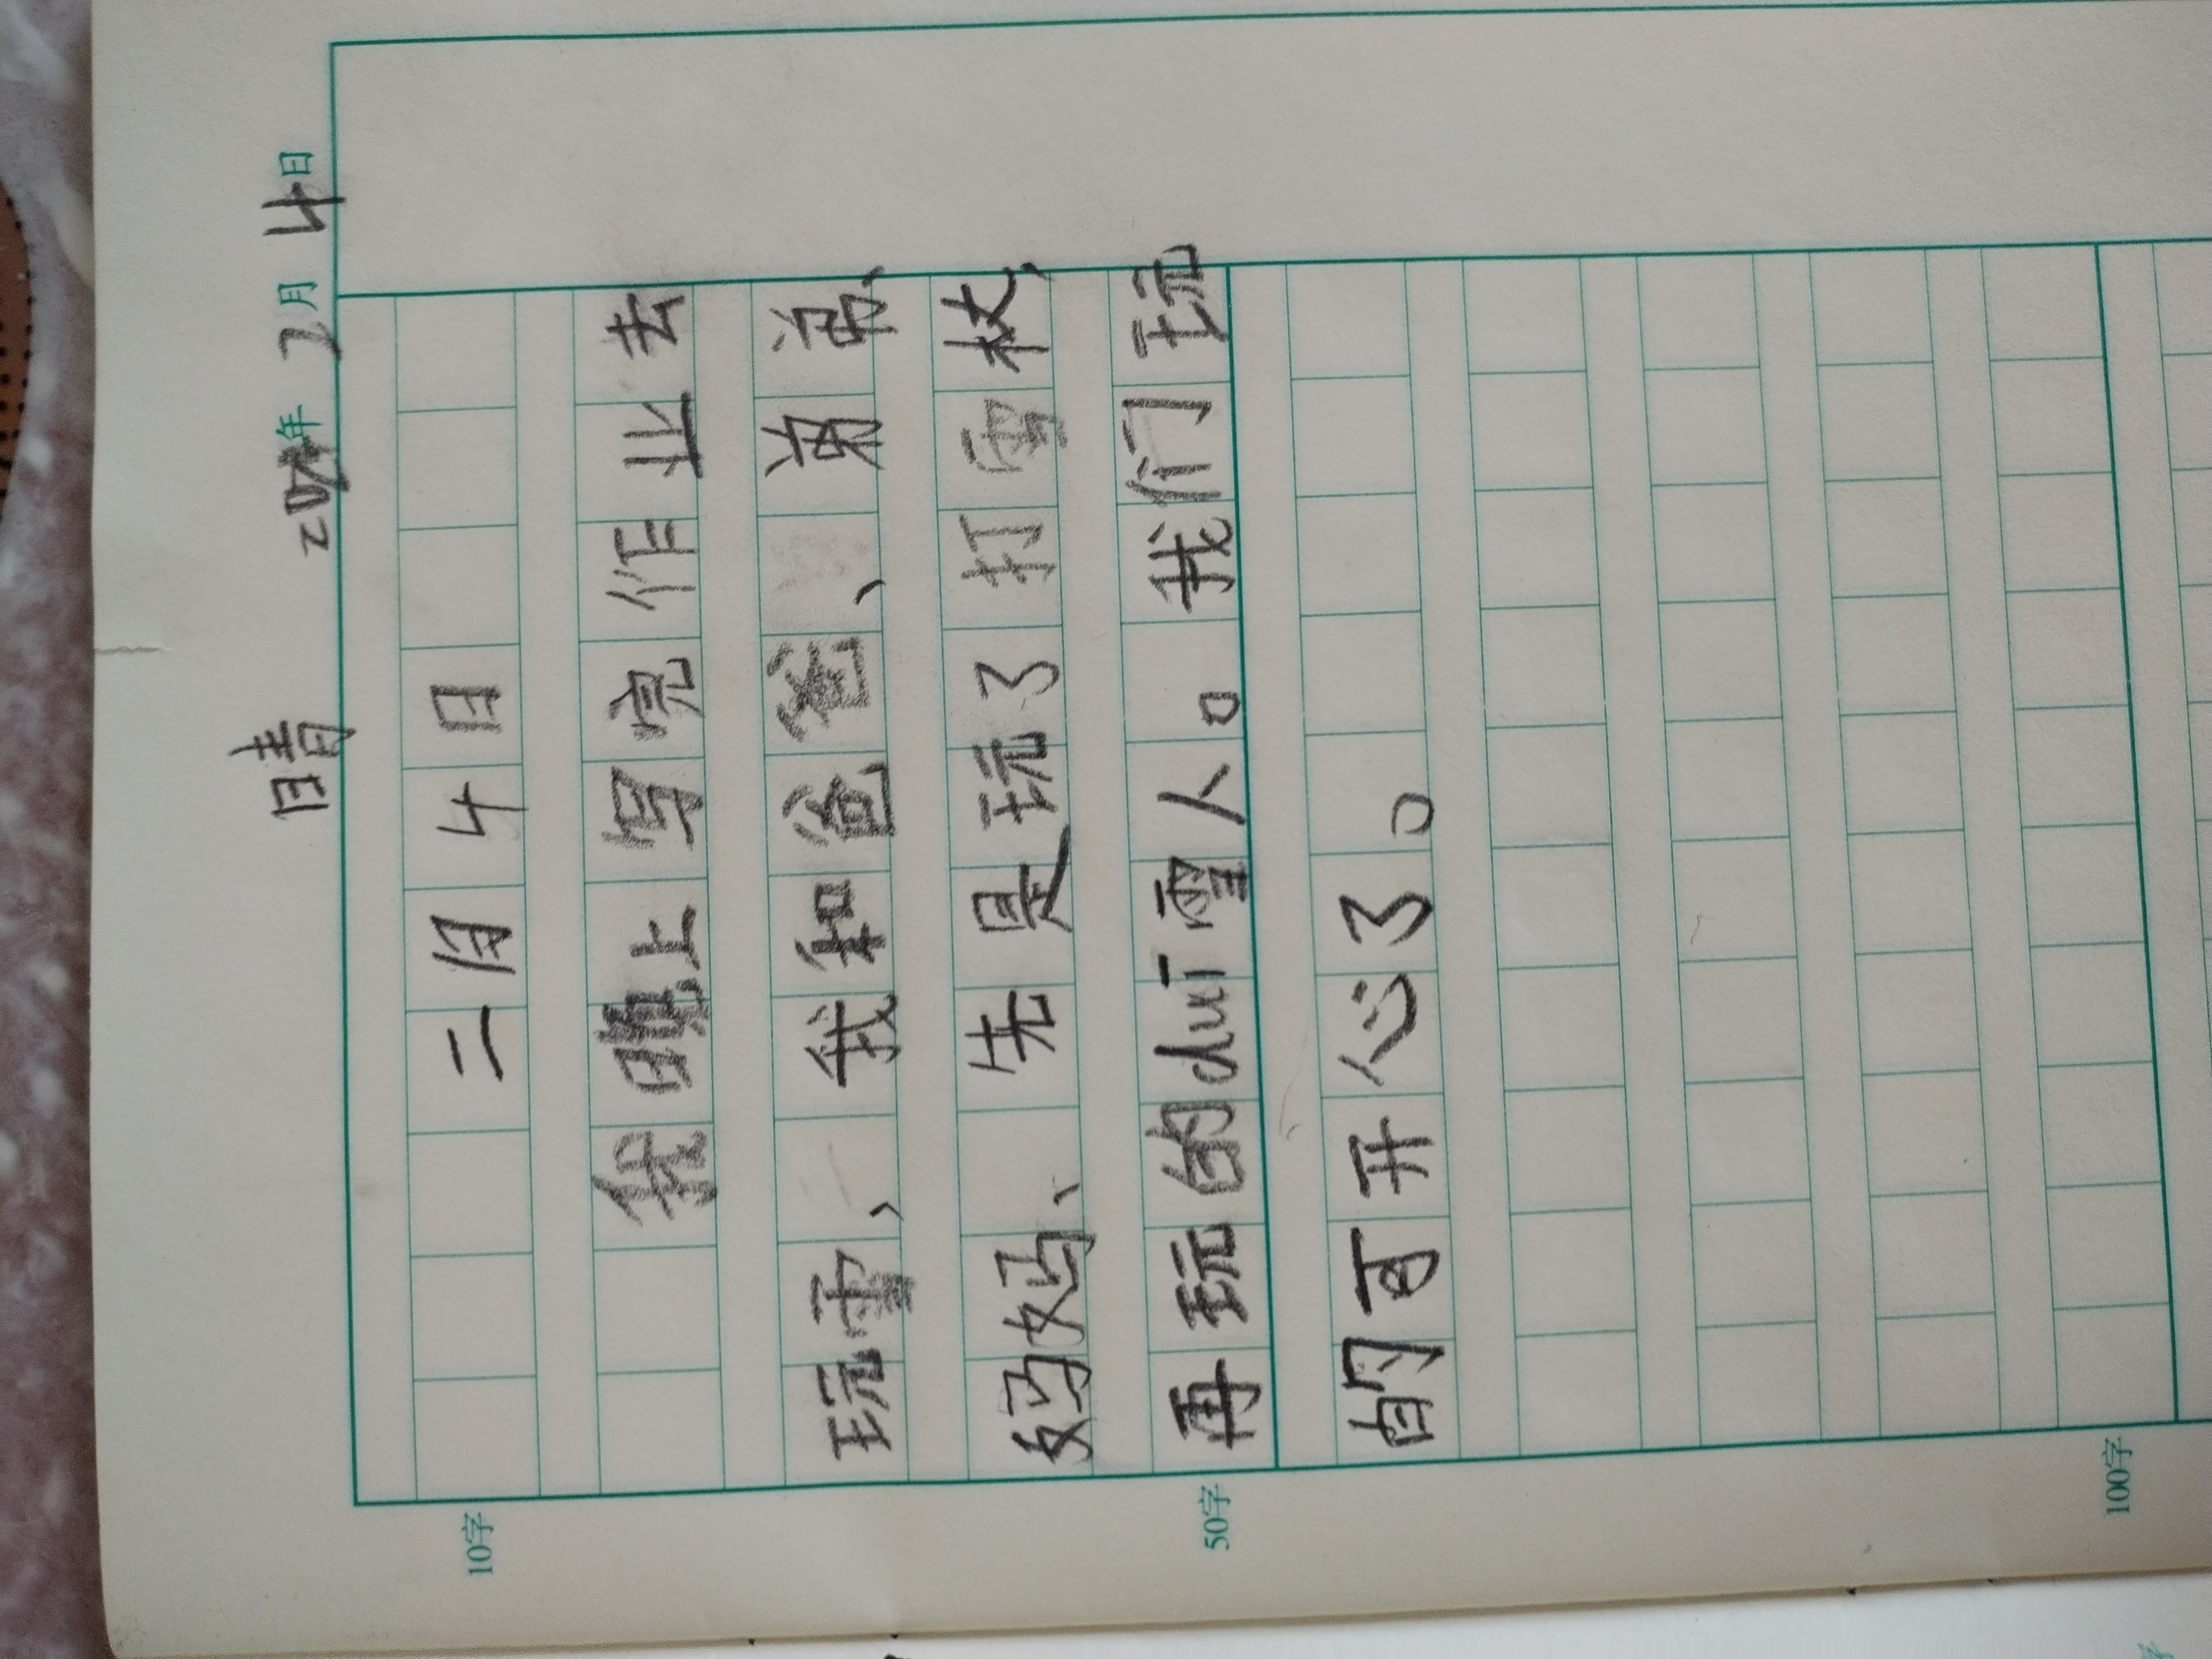 晴 年 2月 4日
二月4日
我晚上写完作业去
玩雪、我和爸爸、
妈妈、先是玩了打雪杖、
再玩的duī雪人。我们玩
的可开心了。
10字
50字
100字